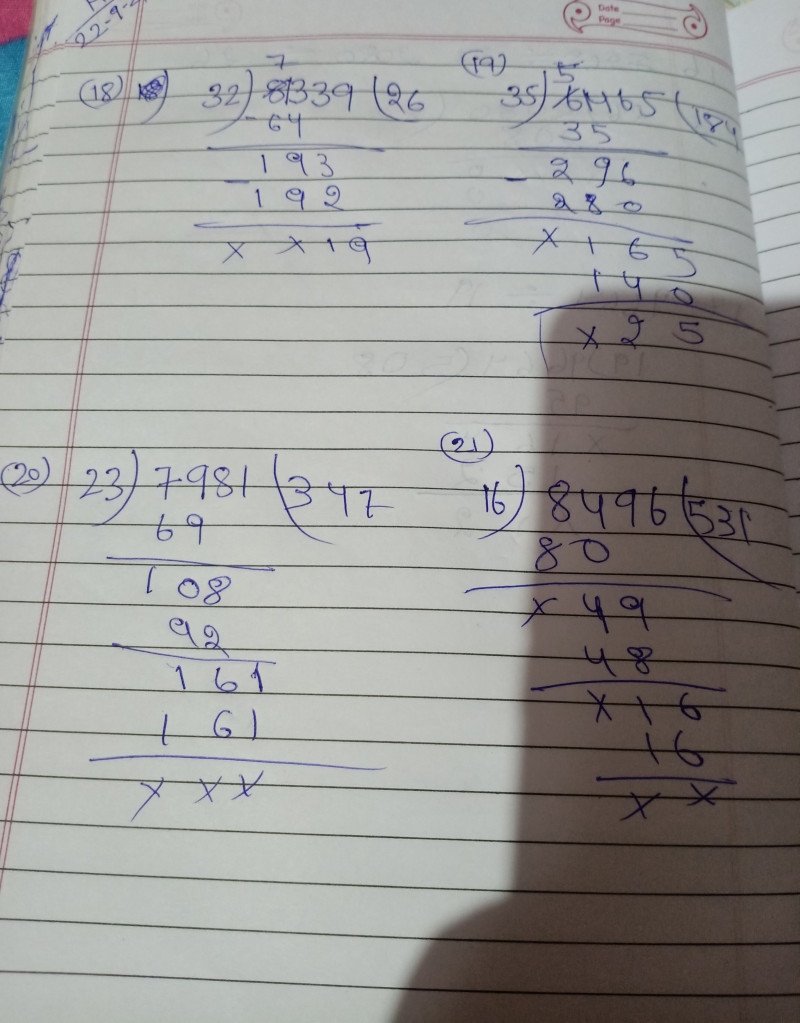 22-9-2
Date
Page
(18) 32) 8339 (26
7
- 64
193
- 192
x x 19
(19) 35) 6465 (184
5
35
296
- 280
x 165
140
x 25
(20) 23) 7981 (347
69
108
92
161
161
x x x
(21) 16) 8496 (531
80
x 49
48
x 16
16
x x